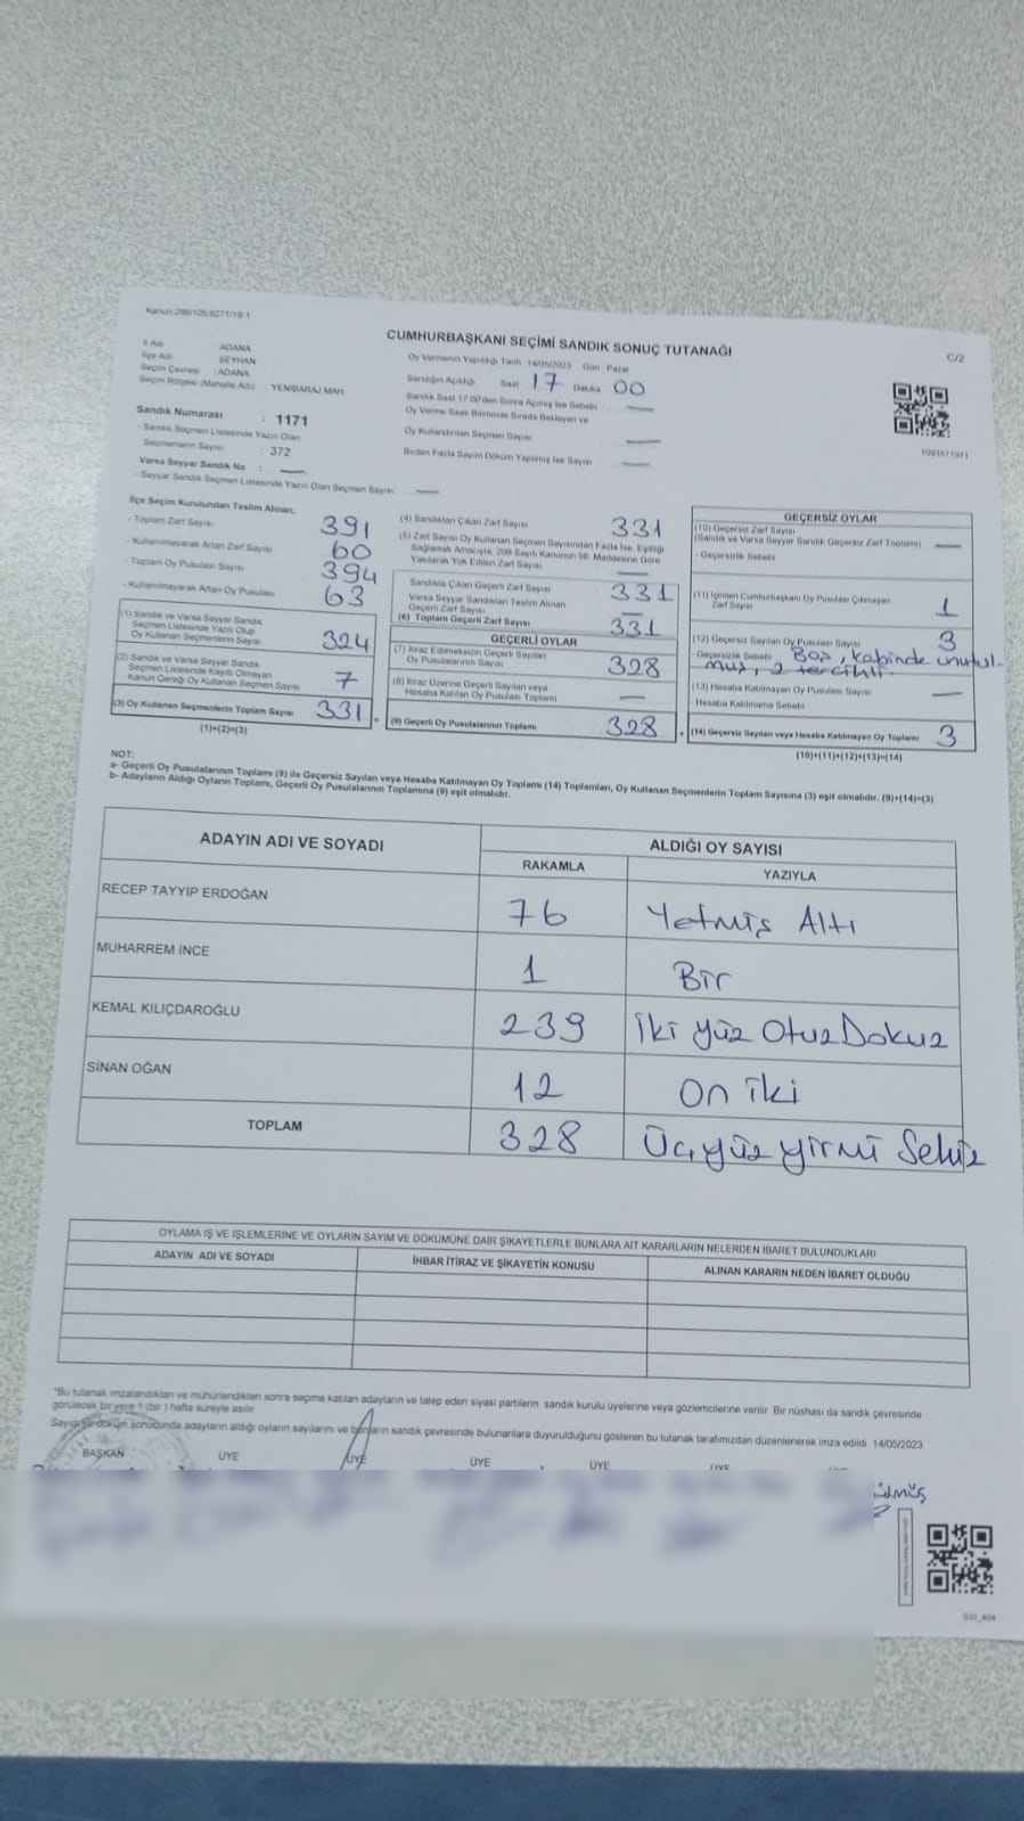 CUMHURBAŞKANI SEÇİMİ SANDIK SONUÇ TUTANAĞI
C/2
İl Adı ADANA
İlçe Adı SEYHAN
Seçim Çevresi : ADANA
Seçim Bölgesi (Mahalle Adı) : YENİBARAJ MAH.
Oy Vermenin Yapıldığı Tarih 14/05/2023 Gün Pazar
Sandığın Açıldığı Saat 17 Dakika 00
Sandık Saat 17.00'den Sonra Açılmış İse Sebebi
Oy Verme Saati Bitiminde Sırada Bekleyen ve
Oy Kullandırılan Seçmen Sayısı
Birden Fazla Sayım Döküm Yapılmış İse Sayısı
Sandık Numarası : 1171
Sandık Seçmen Listesinde Yazılı Olan
Seçmenlerin Sayısı : 372
Varsa Seyyar Sandık No :
Seyyar Sandık Seçmen Listesinde Yazılı Olan Seçmen Sayısı
İlçe Seçim Kurulundan Teslim Alınan;
- Toplam Zarf Sayısı 391
- Kullanılmayarak Artan Zarf Sayısı 60
- Toplam Oy Pusulası Sayısı 394
- Kullanılmayarak Artan Oy Pusulası 63
(1) Sandık ve Varsa Seyyar Sandık
Seçmen Listesinde Yazılı Olup
Oy Kullanan Seçmenlerin Sayısı 324
(2) Sandık ve Varsa Seyyar Sandık
Seçmen Listesinde Kayıtlı Olmayan
Kanun Gereği Oy Kullanan Seçmen Sayısı 7
(3) Oy Kullanan Seçmenlerin Toplam Sayısı 331
(1)+(2)=(3)
(4) Sandıktan Çıkan Zarf Sayısı 331
(5) Zarf Sayısı Oy Kullanan Seçmen Sayısından Fazla İse, Eşitliği
Sağlamak Amacıyla, 298 Sayılı Kanunun 98. Maddesine Göre
Yakılarak Yok Edilen Zarf Sayısı
Sandıkta Çıkan Geçerli Zarf Sayısı 331
Varsa Seyyar Sandıktan Teslim Alınan
Geçerli Zarf Sayısı
(6) Toplam Geçerli Zarf Sayısı 331
GEÇERLİ OYLAR
(7) İtiraz Edilmeksizin Geçerli Sayılan
Oy Pusulalarının Sayısı 328
(8) İtiraz Üzerine Geçerli Sayılan veya
Hesaba Katılan Oy Pusulaları Toplamı
(9) Geçerli Oy Pusulalarının Toplamı 328
GEÇERSİZ OYLAR
(10) Geçersiz Zarf Sayısı
(Sandık ve Varsa Seyyar Sandık Geçersiz Zarf Toplamı)
- Geçersizlik Sebebi
(11) İçinden Cumhurbaşkanı Oy Pusulası Çıkmayan
Zarf Sayısı 1
(12) Geçersiz Sayılan Oy Pusulası Sayısı 3
Geçersizlik Sebebi Boş, kabinde unutul-
muş, 2 tercihli
(13) Hesaba Katılmayan Oy Pusulası Sayısı
Hesaba Katılmama Sebebi
(14) Geçersiz Sayılan veya Hesaba Katılmayan Oy Toplamı 3
(10)+(11)+(12)+(13)=(14)
NOT:
a- Geçerli Oy Pusulalarının Toplamı (9) ile Geçersiz Sayılan veya Hesaba Katılmayan Oy Toplamı (14) Toplamları, Oy Kullanan Seçmenlerin Toplam Sayısına (3) eşit olmalıdır. (9)+(14)=(3)
b- Adayların Aldığı Oyların Toplamı, Geçerli Oy Pusulalarının Toplamına (9) eşit olmalıdır.
ADAYIN ADI VE SOYADI ALDIĞI OY SAYISI
RAKAMLA YAZIYLA
RECEP TAYYIP ERDOĞAN 76 Yetmiş Altı
MUHARREM İNCE 1 Bir
KEMAL KILIÇDAROĞLU 239 İki yüz Otuz Dokuz
SİNAN OĞAN 12 On iki
TOPLAM 328 Üçyüz yirmi Sekiz
OYLAMA İŞ VE İŞLEMLERİNE VE OYLARIN SAYIM VE DÖKÜMÜNE DAİR ŞİKAYETLERLE BUNLARA AİT KARARLARIN NELERDEN İBARET BULUNDUKLARI
ADAYIN ADI VE SOYADI İHBAR İTİRAZ VE ŞİKAYETİN KONUSU ALINAN KARARIN NEDEN İBARET OLDUĞU
"Bu tutanak imzalandıktan ve mühürlendikten sonra seçime katılan adayların ve talep eden siyasi partilerin sandık kurulu üyelerine veya gözlemcilerine verilir. Bir nüshası da sandık çevresinde
görülecek bir yere 1 (bir) hafta süreyle asılır.
Sayım ve döküm sonucunda adayların aldığı oyların sayılarını ve bunların sandık çevresinde bulunanlara duyurulduğunu gösteren bu tutanak tarafımızdan düzenlenerek imza edildi. 14/05/2023
BAŞKAN ÜYE ÜYE ÜYE ÜYE ÜYE